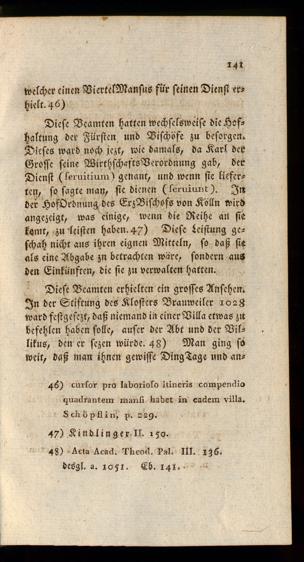 141
welcher einen ViertelMansus für seinen Dienst er-
hielt. 46)
Diese Beamten hatten wechselsweise die Hof-
haltung der Fürsten und Bischöfe zu besorgen.
Dieses ward noch jezt, wie damals, da Karl der
Grosse seine WirthschaftsVerordnung gab, der
Dienst (seruitium) genant, und wenn sie liefer-
ten, so sagte man, sie dienen (seruiunt). In
der HofOrdnung des ErzBischofs von Kölln wird
angezeigt, was einige, wenn die Reihe an sie
kömt, zu leisten haben. 47) Diese Leistung ge-
schah nicht aus ihren eignen Mitteln, so daß sie
als eine Abgabe zu betrachten wäre, sondern aus
den Einkünften, die sie zu verwalten hatten.
Diese Beamten erhielten ein grosses Ansehen.
In der Stiftung des Klosters Brauweiler 1028
ward festgesezt, daß niemand in einer Villa etwas zu
befehlen haben solle, auser der Abt und der Vil-
likus, den er sezen würde. 48) Man ging so
weit, daß man ihnen gewisse DingTage und an-
46) cursor pro laborioso itineris compendio
quadrantem mansi habet in eadem villa.
Schöpflin, p. 229.
47) Kindlinger II. 150.
48) Acta Acad. Theod. Pal. III. 136.
desgl. a. 1051. Eb. 141.